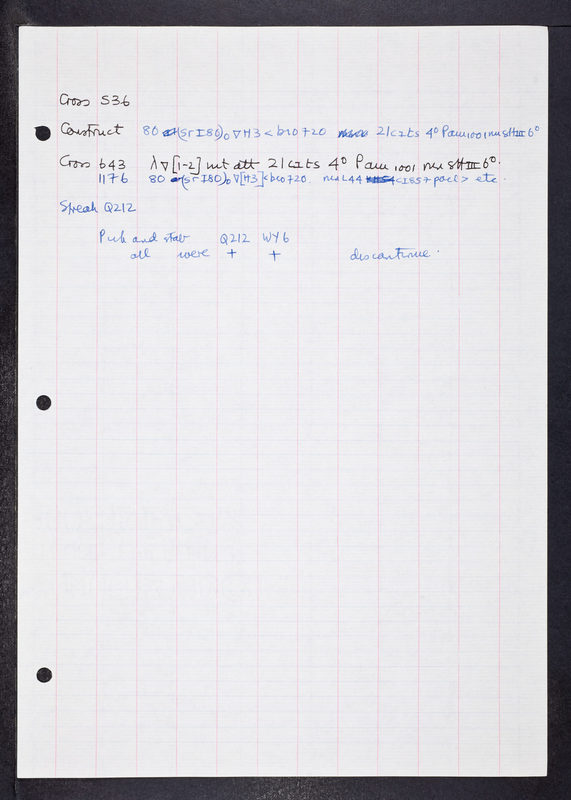 Cross 536
Construct 80 (sr I 80)₀ ∇H3 < bio 720 21 cIts 4° Pam 1001 nin 5 HIII 6°
Cross 643 λ ∇ [1-2] int att 21 cIts 4° Pam 1001 nin 5 HIII 6°.
1176 80 (sr I 80)₀ ∇[H3] < bio 720. nin L44 < I 857 + pacl > etc.
Streak Q212
Pick and stab Q212 WY6
all were + + discontinue.